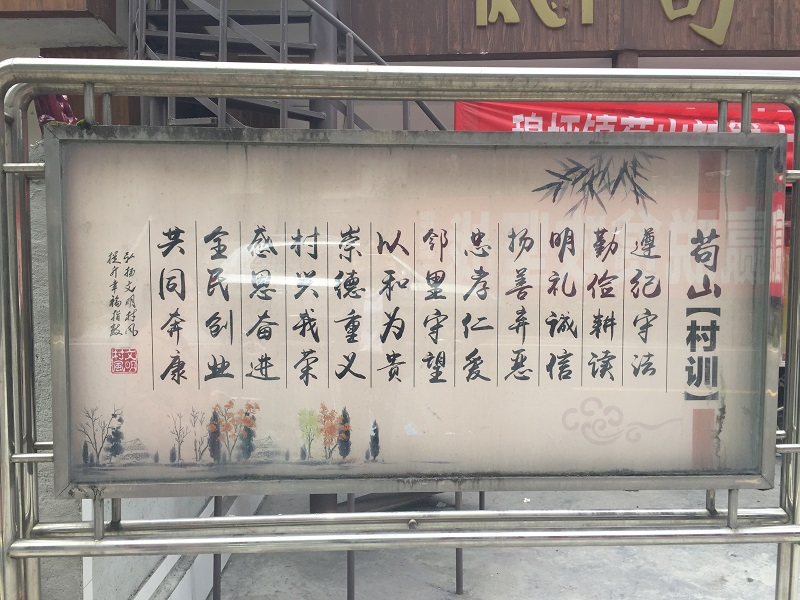 苟山【村训】
遵纪守法
勤俭耕读
明礼诚信
扬善弃恶
忠孝仁爱
邻里守望
以和为贵
崇德重义
村兴我荣
感恩奋进
全民创业
共同奔康
弘扬文明村风
提升幸福指数
文明村风